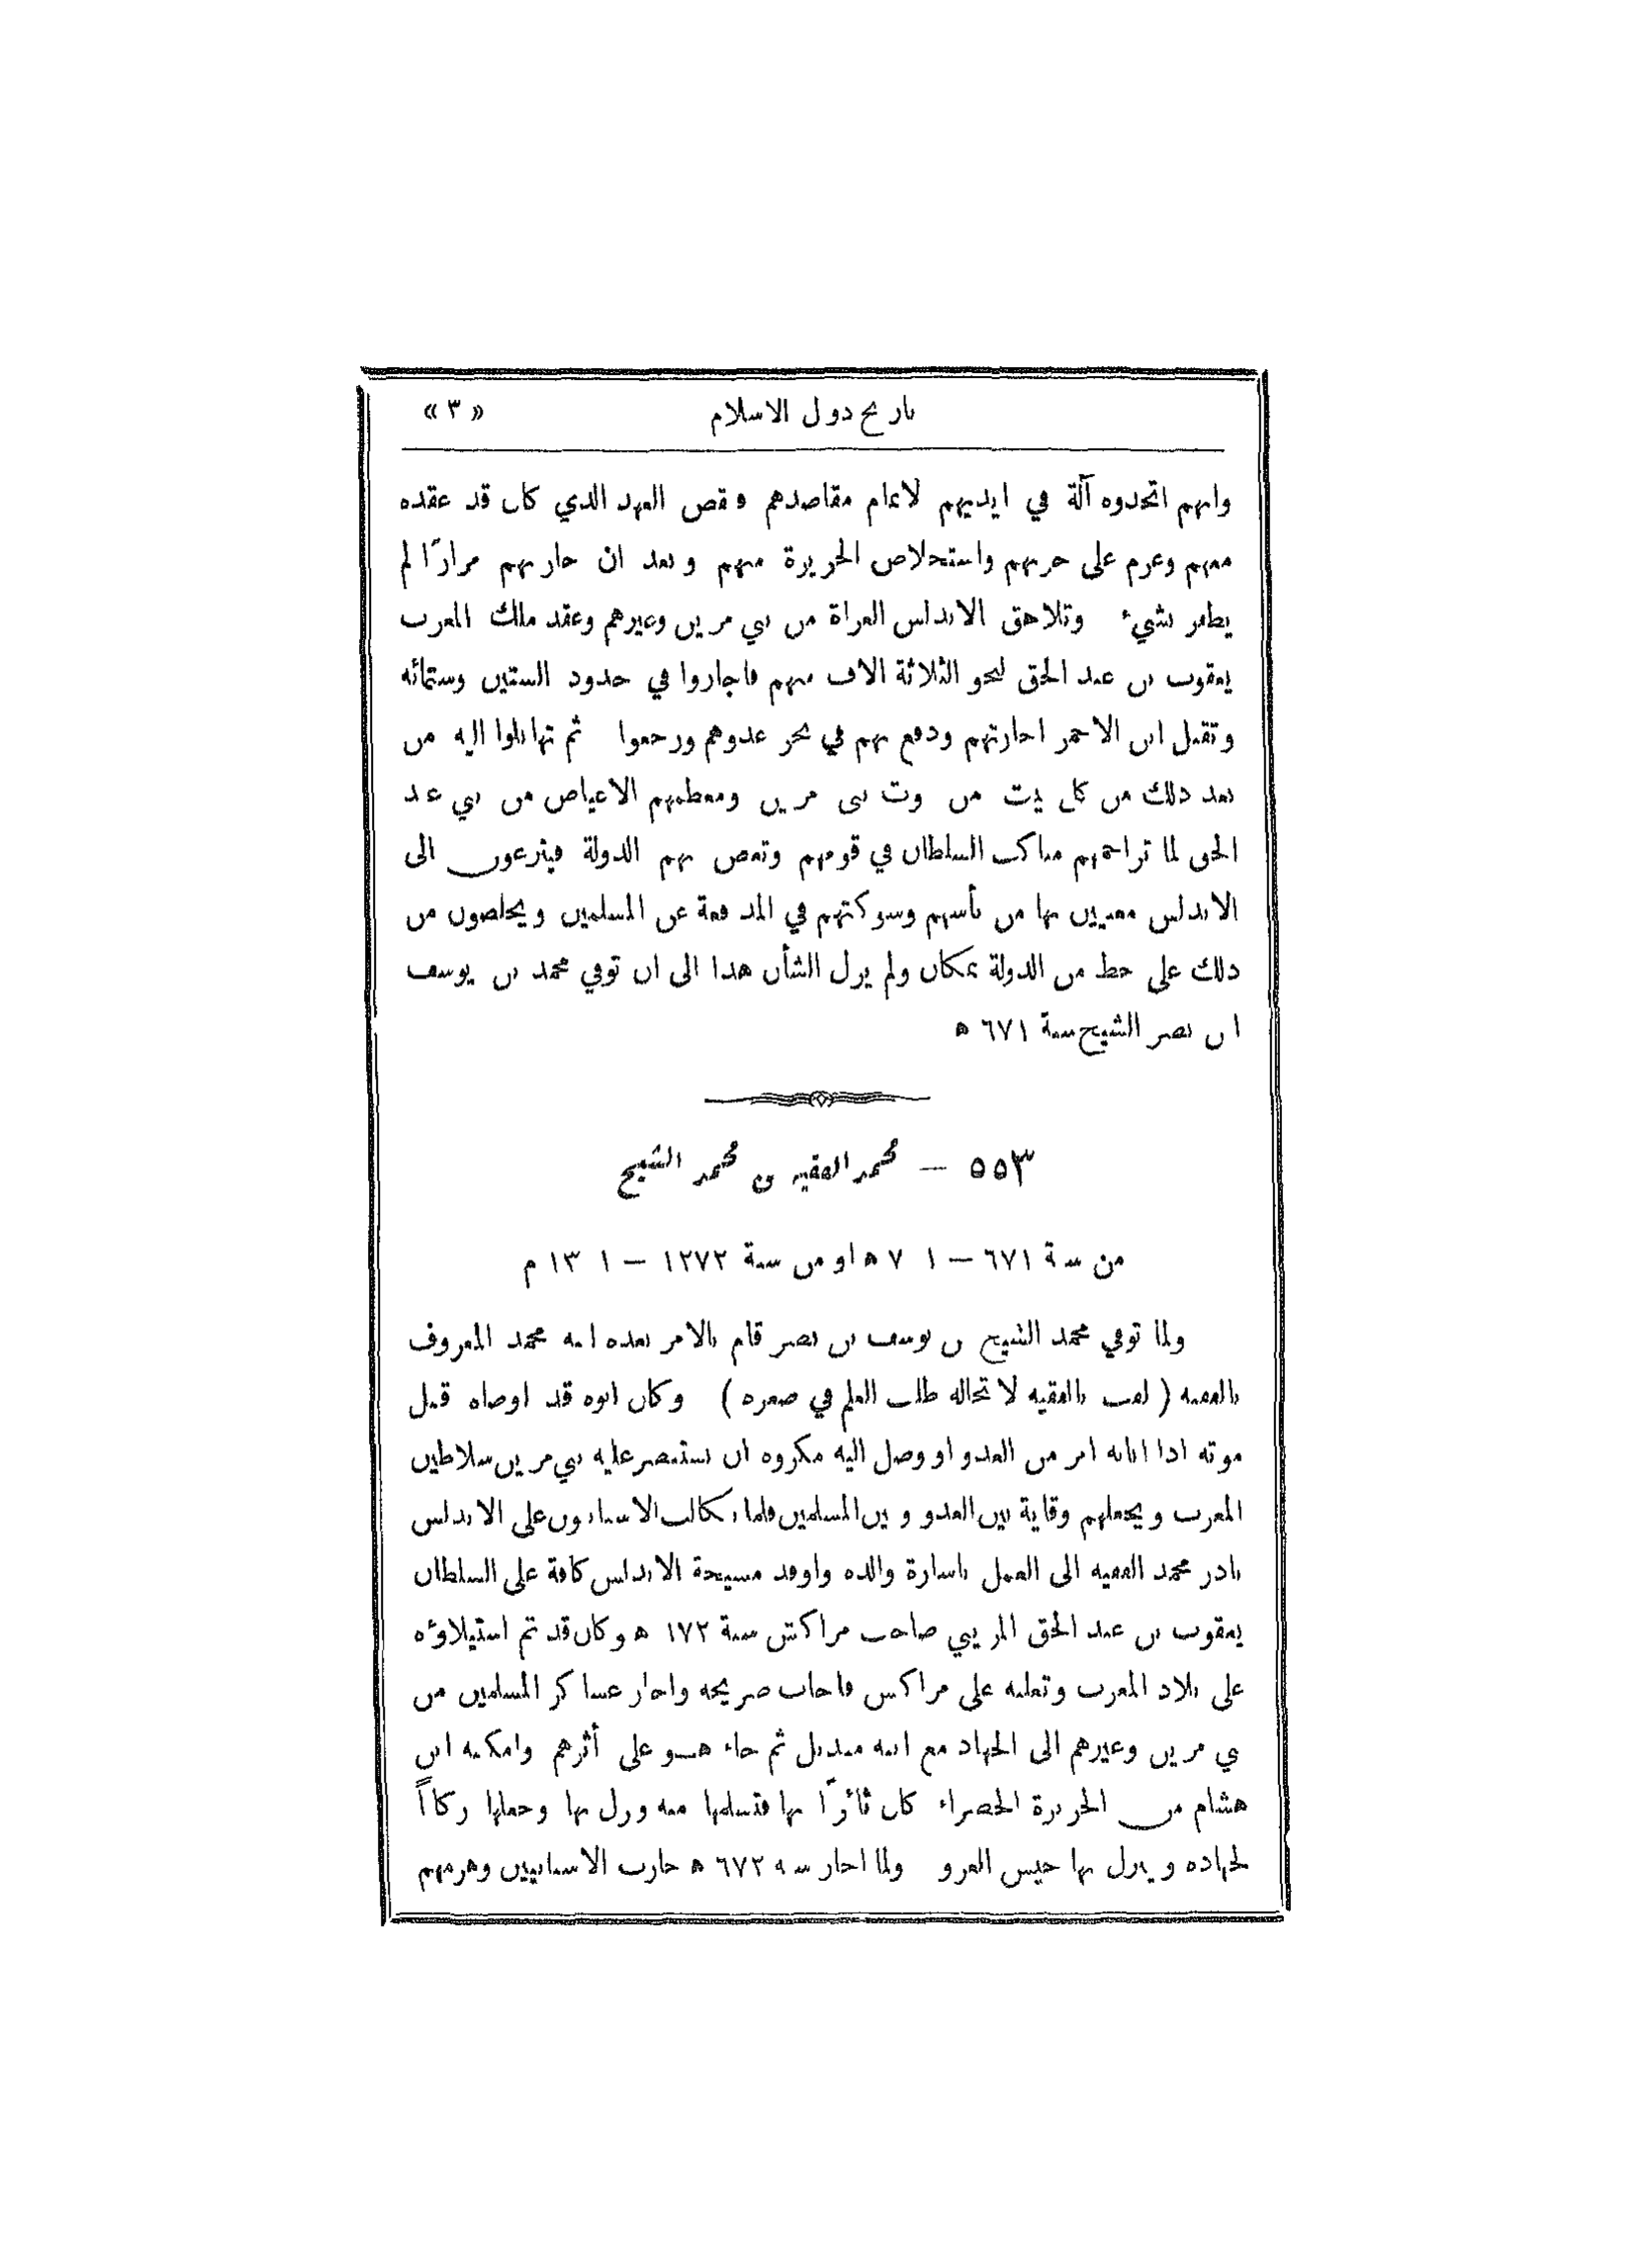 تاريخ دول الاسلام «٣»
وانهم اتخذوه آلة في ايديهم لاتمام مقاصدهم ونقض العهد الذي كان قد عقده
معهم وعزم على حربهم واستخلاص الجزيرة منهم وبعد ان حاربهم مرارًا لم
يظفر بشيء وتلاحق الاندلس الغزاة من بني مرين وغيرهم وعقد ملك المغرب
يعقوب بن عبد الحق لنحو الثلاثة الاف منهم فاجازوا في حدود الستين وستمائه
وتقبل ابن الاحمر اجازتهم ودفع بهم في نحر عدوهم ورجعوا ثم تهايلوا اليه من
بعد ذلك من كل بيت من بيوت بنى مرين ومعظمهم الاعياص من بني عبد
الحق لما تزاحمهم مناكب السلطان في قومهم وتغص بهم الدولة فينزعون الى
الاندلس مغنيين بها من بأسهم وشوكتهم في المدافعة عن المسلمين ويخلصون من
ذلك على حظ من الدولة بمكان ولم يزل الشأن هذا الى ان توفي محمد بن يوسف
ابن نصر الشيخ سنة ٦٧١ ه
٥٥٣ – محمد الفقيه بن محمد الشيخ
من سنة ٦٧١ – ٧٠١ ه او من سنة ١٢٧٢ – ١٣٠١ م
ولما توفي محمد الشيخ بن يوسف بن نصر قام بالامر بعده ابنه محمد المعروف
بالفقيه ( لقب بالفقيه لانتحاله طلب العلم في صغره ) وكان ابوه قد اوصاه قبل
موته اذا انابه امر من العدو او وصل اليه مكروه ان يستنصر عليه ببني مرين سلاطين
المغرب ويجعلهم وقاية بين العدو وبين المسلمين فلما تكالب الاسبانيون على الاندلس
بادر محمد الفقيه الى العمل باشارة والده واوفد مشيخة الاندلس كافة على السلطان
يعقوب بن عبد الحق المريني صاحب مراكش سنة ١٧٢ ه وكان قد تم استيلاؤه
على بلاد المغرب وتغلبه على مراكش فاجاب صريخه واجاز عساكر المسلمين من
بني مرين وغيرهم الى الجهاد مع ابنه منديل ثم جاء هو على أثرهم وامكنه ابن
هشام من الجزيرة الخضراء كان ثائرًا بها فتسلمها منه ونزل بها وجعلها ركابًا
لجهاده وينزل بها جيش الغزو ولما اجاز سنة ٦٧٢ ه حارب الاسبانيين وهزمهم